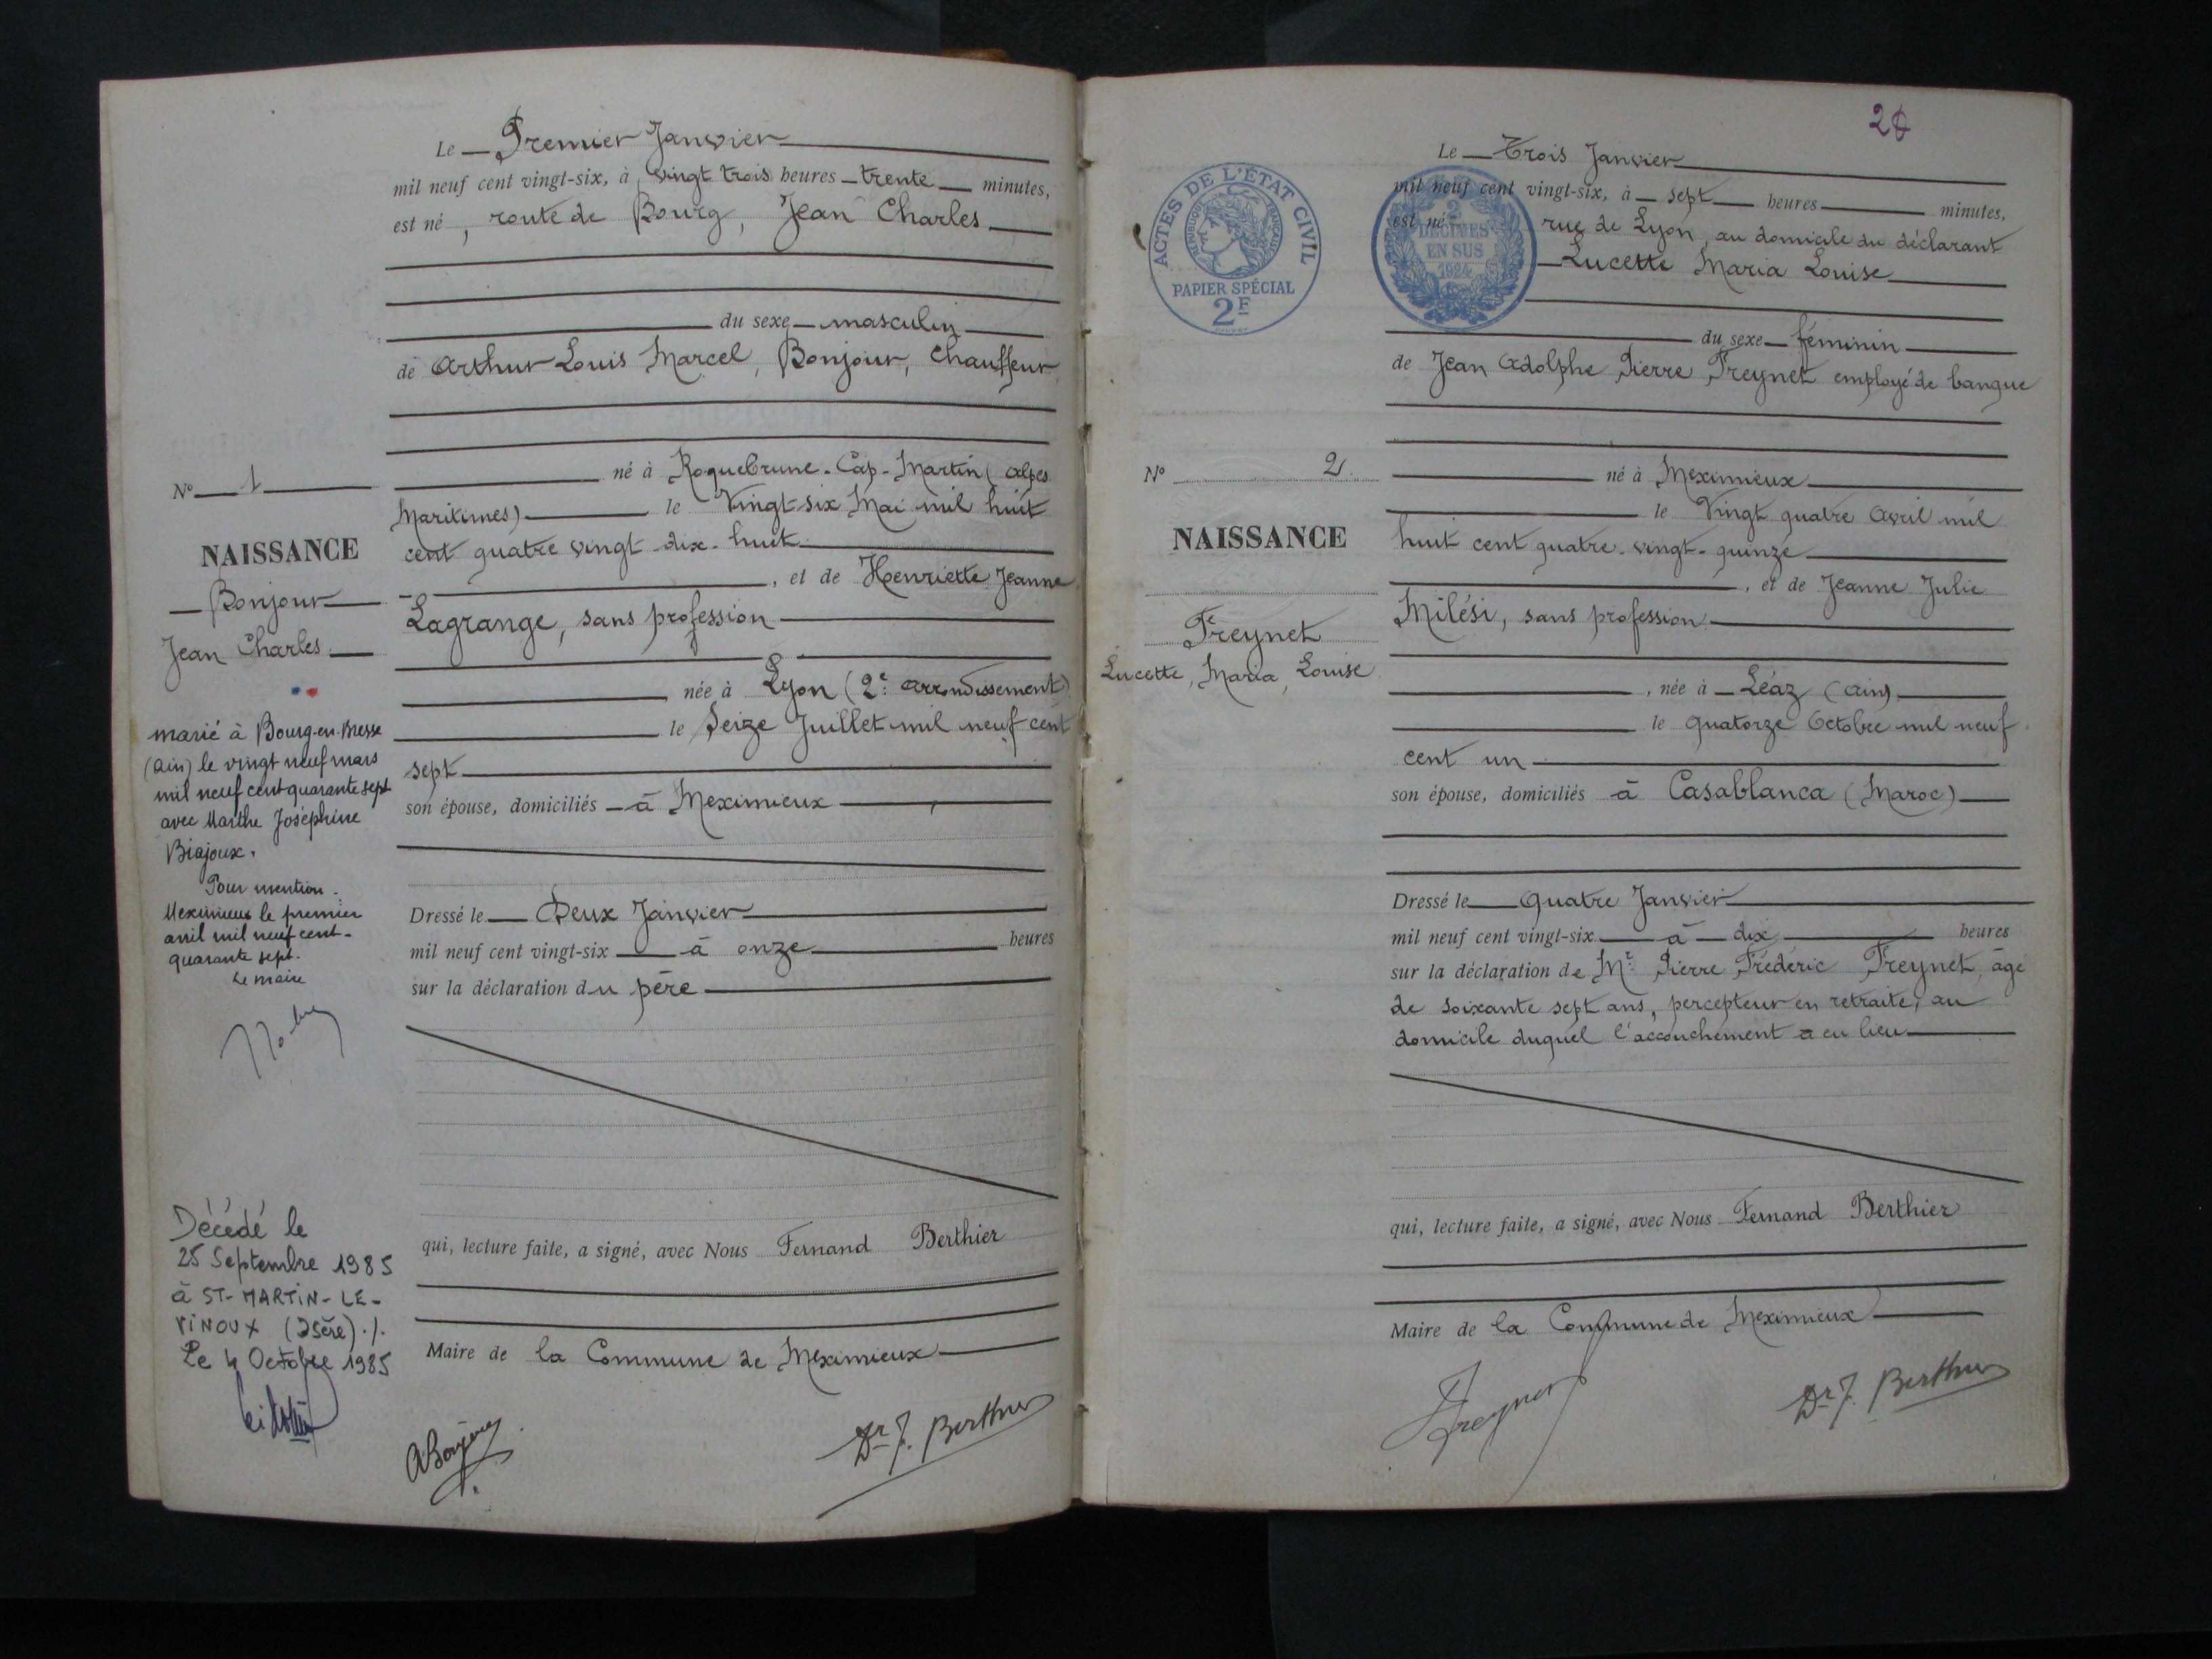 Le Premier Janvier
mil neuf cent vingt-six, à vingt trois heures trente minutes,
est né, route de Bourg, Jean Charles
du sexe masculin
de Arthur Louis Marcel, Bonjour, Chauffeur
né à Roquebrune-Cap-Martin (Alpes
Maritimes) le Vingt-six Mai mil huit
cent quatre vingt dix-huit
, et de Henriette Jeanne
Lagrange, sans profession
née à Lyon (2e arrondissement)
le Seize Juillet mil neuf cent
sept
son épouse, domiciliés à Meximieux
Dressé le Deux Janvier
mil neuf cent vingt-six à onze heures
sur la déclaration du père
qui, lecture faite, a signé, avec Nous Fernand Berthier
Maire de la Commune de Meximieux
ABonjour
Dr F. Berthier
N° 1
NAISSANCE
Bonjour
Jean Charles
marié à Bourg-en-Bresse
(Ain) le vingt neuf mars
mil neuf cent quarante sept
avec Marthe Joséphine
Biajoux.
Pour mention.
Meximieux le premier
avril mil neuf cent-
quarante sept.
Le maire
Décédé le
25 Septembre 1985
à ST-MARTIN-LE-
VINOUX (Isère)./.
Le 4 Octobre 1985
ACTES DE L'ÉTAT CIVIL
RÉPUBLIQUE FRANÇAISE
PAPIER SPÉCIAL
2F
2
DÉCIMES
EN SUS
1924
Le Trois Janvier
mil neuf cent vingt-six, à sept heures minutes,
est né rue de Lyon, au domicile du déclarant
Lucette Maria Louise
du sexe féminin
de Jean Adolphe Pierre Freynet employé de banque
né à Meximieux
le Vingt quatre Avril mil
huit cent quatre-vingt-quinze
, et de Jeanne Julie
Milési, sans profession
, née à Léaz (Ain)
le quatorze Octobre mil neuf
cent un
son épouse, domiciliés à Casablanca (Maroc)
Dressé le Quatre Janvier
mil neuf cent vingt-six à dix heures
sur la déclaration de Mr Pierre Frédéric Freynet, âgé
de soixante sept ans, percepteur en retraite, au
domicile duquel l'accouchement a eu lieu
qui, lecture faite, a signé, avec Nous Fernand Berthier
Maire de la Commune de Meximieux
Freynet
Dr F. Berthier
N° 2
NAISSANCE
Freynet
Lucette, Maria, Louise